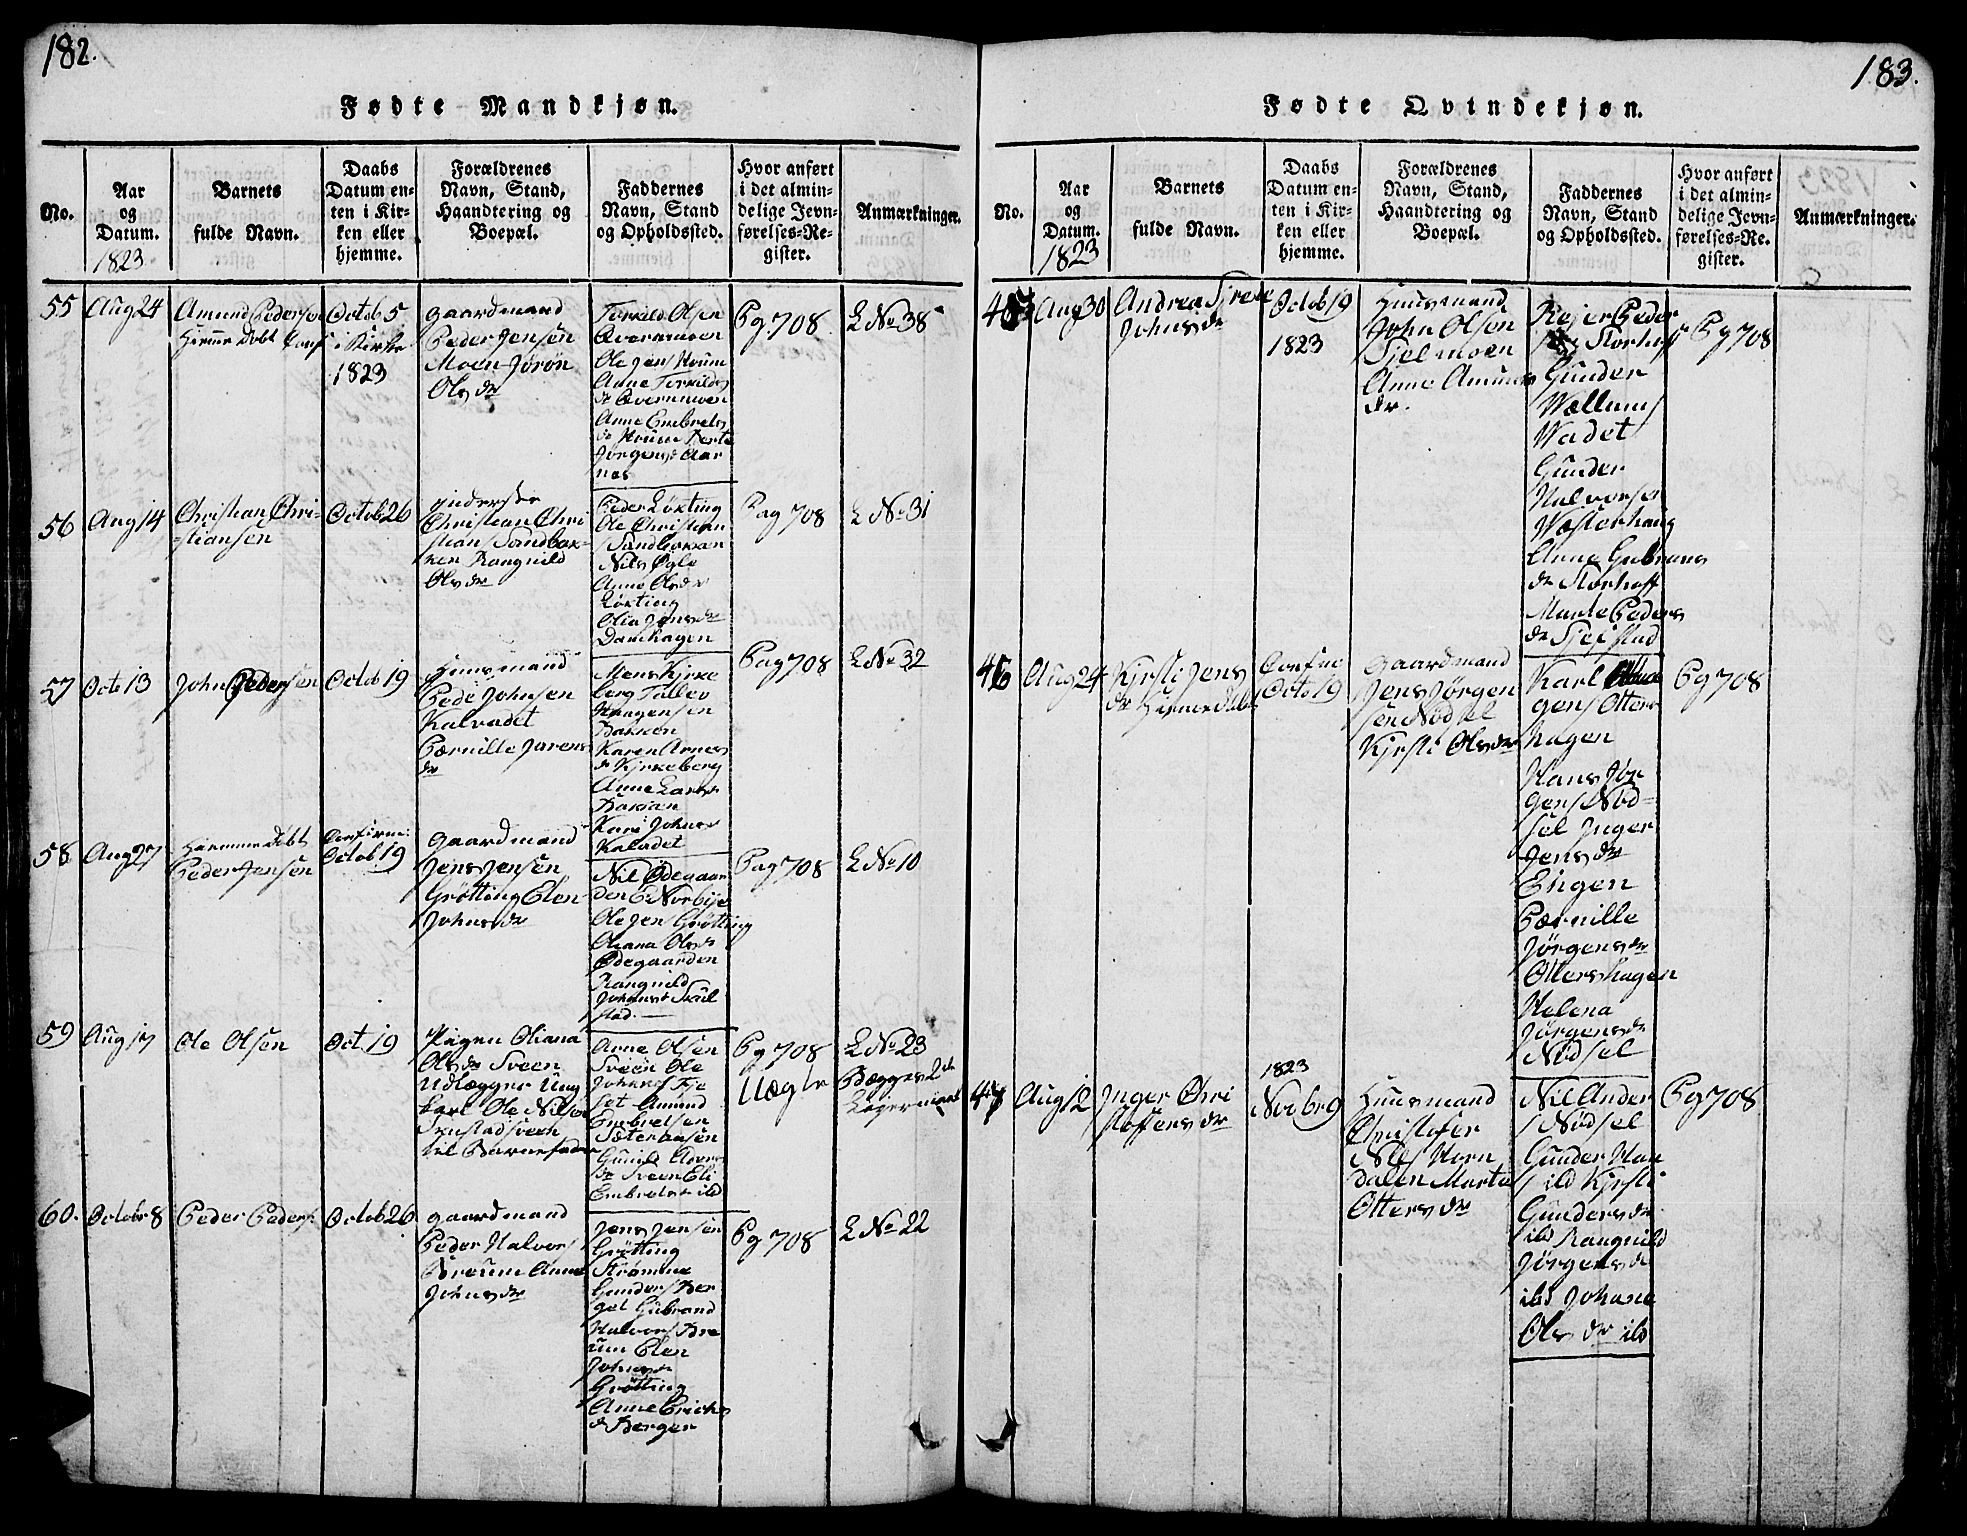 182.
Fødte Mandkjøn.
No.
Aar
og
Datum.
1823
Barnets
fulde Navn.
Daabs
Datum en-
ten i Kir-
ken eller
hjemme.
Forældrenes
Navn, Stand,
Haandtering og
Boepæl.
Faddernes
Navn, Stand
og Opholdssted.
Hvor anført
i det almin-
delige Jevn-
førelses-Re-
gister.
Anmærkninger.
55
Aug 24
Amund Pedersen
Hiemme Døbt Conf
Octob 5
i Kirke
1823
Gaardmand
Peder Jensen
Moen Jørøn
Olsdr
Torkild Olsen
Evenmoen
Ole Jens Houm
Anne Torkilds
dr Evenmoen
Anne Embrets
dr Houm Berte
Jørgens Aar
nes
Pg 708
L No 38
56
Aug 14
Christian Chri-
-stiansen
Octob 26
Inderste
Christian Chri
stians Sandbak-
ken Rangnild
Olsdr
Peder Løkting
Ole Christian
Sandbakken
Nils Øgle
Anne Olsdr
Løkting
Olia Jensdr
Damhagen
Pag 708
L No 31
57
Octo 13
John Pedersen
Octob 19
Huusmand
Pede Johnsen
Kalvadet
Pærnille Jarens
dr
Mens Kjrke
berg Tollev
Haagensen
Bakken
Karen Arnes
dr Kjrkeberg
Anne Lars
Bakken
Kari Johns
Kalvadet
Pag 708
L No 32
58
Aug 27
Hiemme Døbt
Peder Jensen
Confirm:
Octob 19
Gaardmand
Jens Jensen
Grøtting Elen
Johnsdr
Nil Ødegaar
den E Norbye
Ole Jens Grøtting
Oliana Ols
Ødegaarden
Rangnild
Johns Skul
stad
Pag 708
L No 10
59
Aug 17
Ole Olsen
Oct 19
Pigen Oliana
Olsdr Sveen
Udlægger Ung
karl Ole Nilsen
til Barnefader
Arne Olsen
Sveen Ole
Johns Tje
set Amund
Embretsen
Sæterhusen
Gunild Arnes
dr Sveen Eli
Embrets ibd
Pg 708
Uægte
L No 23
Begges 2de
Leiermaal
60.
Octobr 8
Peder Peders
Octob 26
Gaardmand
Peder Halvors
Breum Anne
Johnsdr
Jens Jensen
Grøtting
Strømme
Gunders Ber
get Gubrand
Halvors Bre
um Elen
Johns
Grøtting
Anne Erichs
dr Berger
Pg 708
L No 22
183.
Fødte Qvindekjøn.
No.
Aar
og
Datum.
1823
Barnets
fulde Navn.
Daabs
Datum en-
ten i Kir-
ken eller
hjemme.
Forældrenes
Navn, Stand,
Haandtering og
Boepæl.
Faddernes
Navn, Stand
og Opholdssted.
Hvor anført
i det almin-
delige Jevn-
førelses-Re-
gister.
Anmærkninger.
45
Aug 30
Andrea Sirene
Johnsdr
Octob 19
1823
Huusmand
John Olsen
Tjelmoen
Anne Amunds
dr.
Rejer Peder
Storhof
Gunder
Wællums
Wadet
Gunder
Halvorse
Wæsterhaug
Anne Gubrans
dr Storhoff
Marte Peders
dr
Pg 708
46
Aug 24
Kjrsti Jens
dr Hjemme døbt
Confir
Octo 19
Gaardmand
Jens Jørgen
sen Nødsel
Kjrsti Olsdr
Karl
gens Otters
hagen
Hans Jør
gens Nød-
sel Inger
Jensdr
Engen
Pærnille
Jørgensdr
Ottershagen
Helena
Jørgensdr
Nødsel
Pg 708
47
Aug 12
Inger Chri
stoffersdr
1823
Novbr 9
Huusmand
Christofer
Nils Horn
dalen Marte
Ottersdr
Nil Ander
s Nødsel
Gunder Han
s ibd Kjrsti
Gundersdr
ibd Rangnild
Jørgensdr
ibd Johane
Olsdr ibd
Pg 708